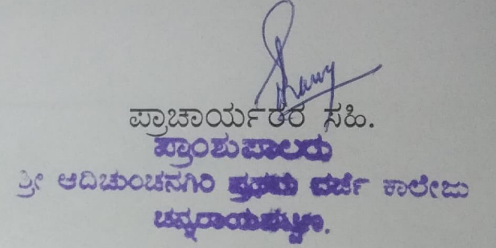 ಪ್ರಾಚಾರ್ಯರ ಸಹಿ.
ಪ್ರಾಂಶುಪಾಲರು
ಶ್ರೀ ಆದಿಚುಂಚನಗಿರಿ ಪ್ರಥಮ ದರ್ಜೆ ಕಾಲೇಜು
ಚನ್ನರಾಯಪಟ್ಟಣ.